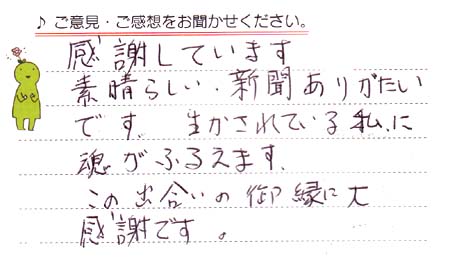 ♪ ご意見・ご感想をお聞かせください。
感謝しています
素晴らしい.新聞ありがたい
です. 生かされている私.に
魂がふるえます.
この出合いの御縁に大
感謝です。